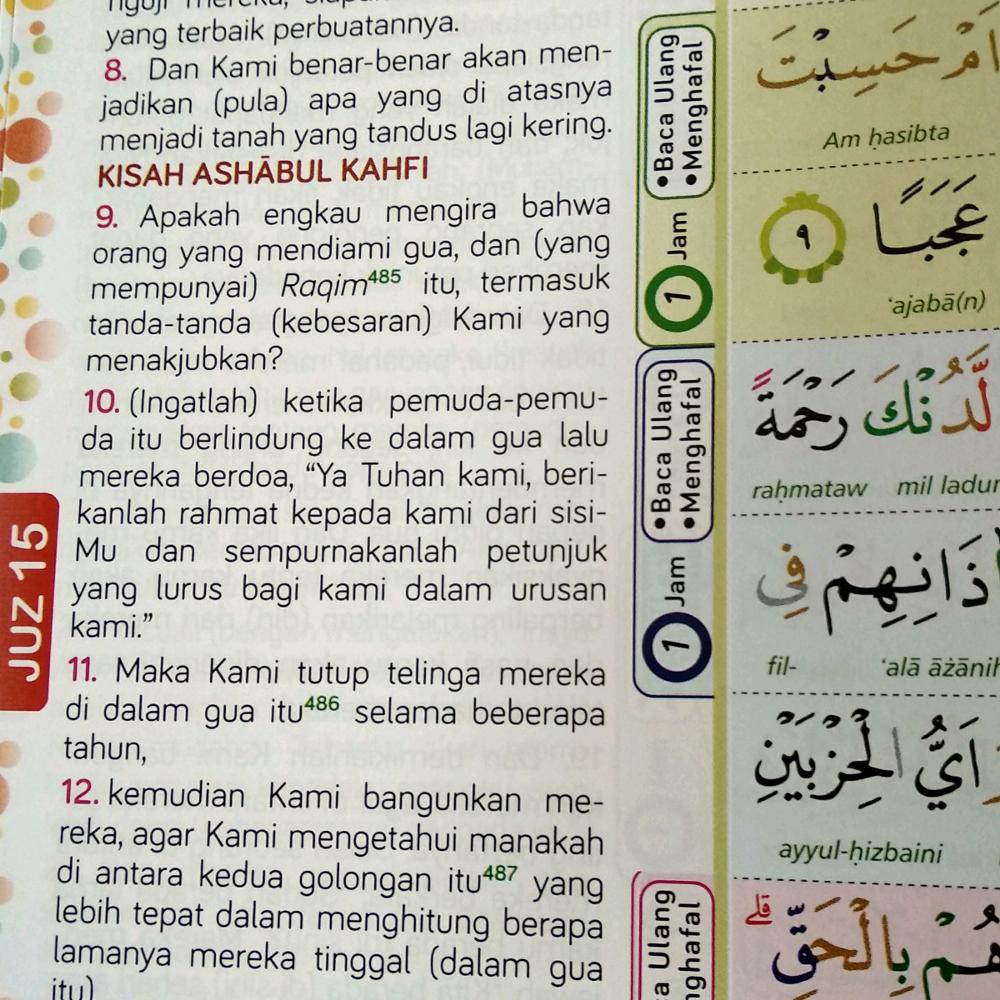 yang terbaik perbuatannya.
8. Dan Kami benar-benar akan men-
jadikan (pula) apa yang di atasnya
menjadi tanah yang tandus lagi kering.
KISAH ASHĀBUL KAHFI
9. Apakah engkau mengira bahwa
orang yang mendiami gua, dan (yang
mempunyai) Raqim485 itu, termasuk
tanda-tanda (kebesaran) Kami yang
menakjubkan?
10. (Ingatlah) ketika pemuda-pemu-
da itu berlindung ke dalam gua lalu
mereka berdoa, “Ya Tuhan kami, beri-
kanlah rahmat kepada kami dari sisi-
Mu dan sempurnakanlah petunjuk
yang lurus bagi kami dalam urusan
kami.”
11. Maka Kami tutup telinga mereka
di dalam gua itu486 selama beberapa
tahun,
12. kemudian Kami bangunkan me-
reka, agar Kami mengetahui manakah
di antara kedua golongan itu487 yang
lebih tepat dalam menghitung berapa
lamanya mereka tinggal (dalam gua
itu)
JUZ 15
•Baca Ulang
•Menghafal
1 Jam
•Baca Ulang
•Menghafal
1 Jam
اَمْ حَسِبْتَ
Am ḥasibta
عَجَبًا ٩
‘ajabā(n)
لَّدُنْكَ رَحْمَةً
raḥmataw mil ladun
فِى
fil- ‘alā āżānih
اَيُّ الْحِزْبَيْنِ
ayyul-ḥizbaini
بِالْحَقِّ ۗ